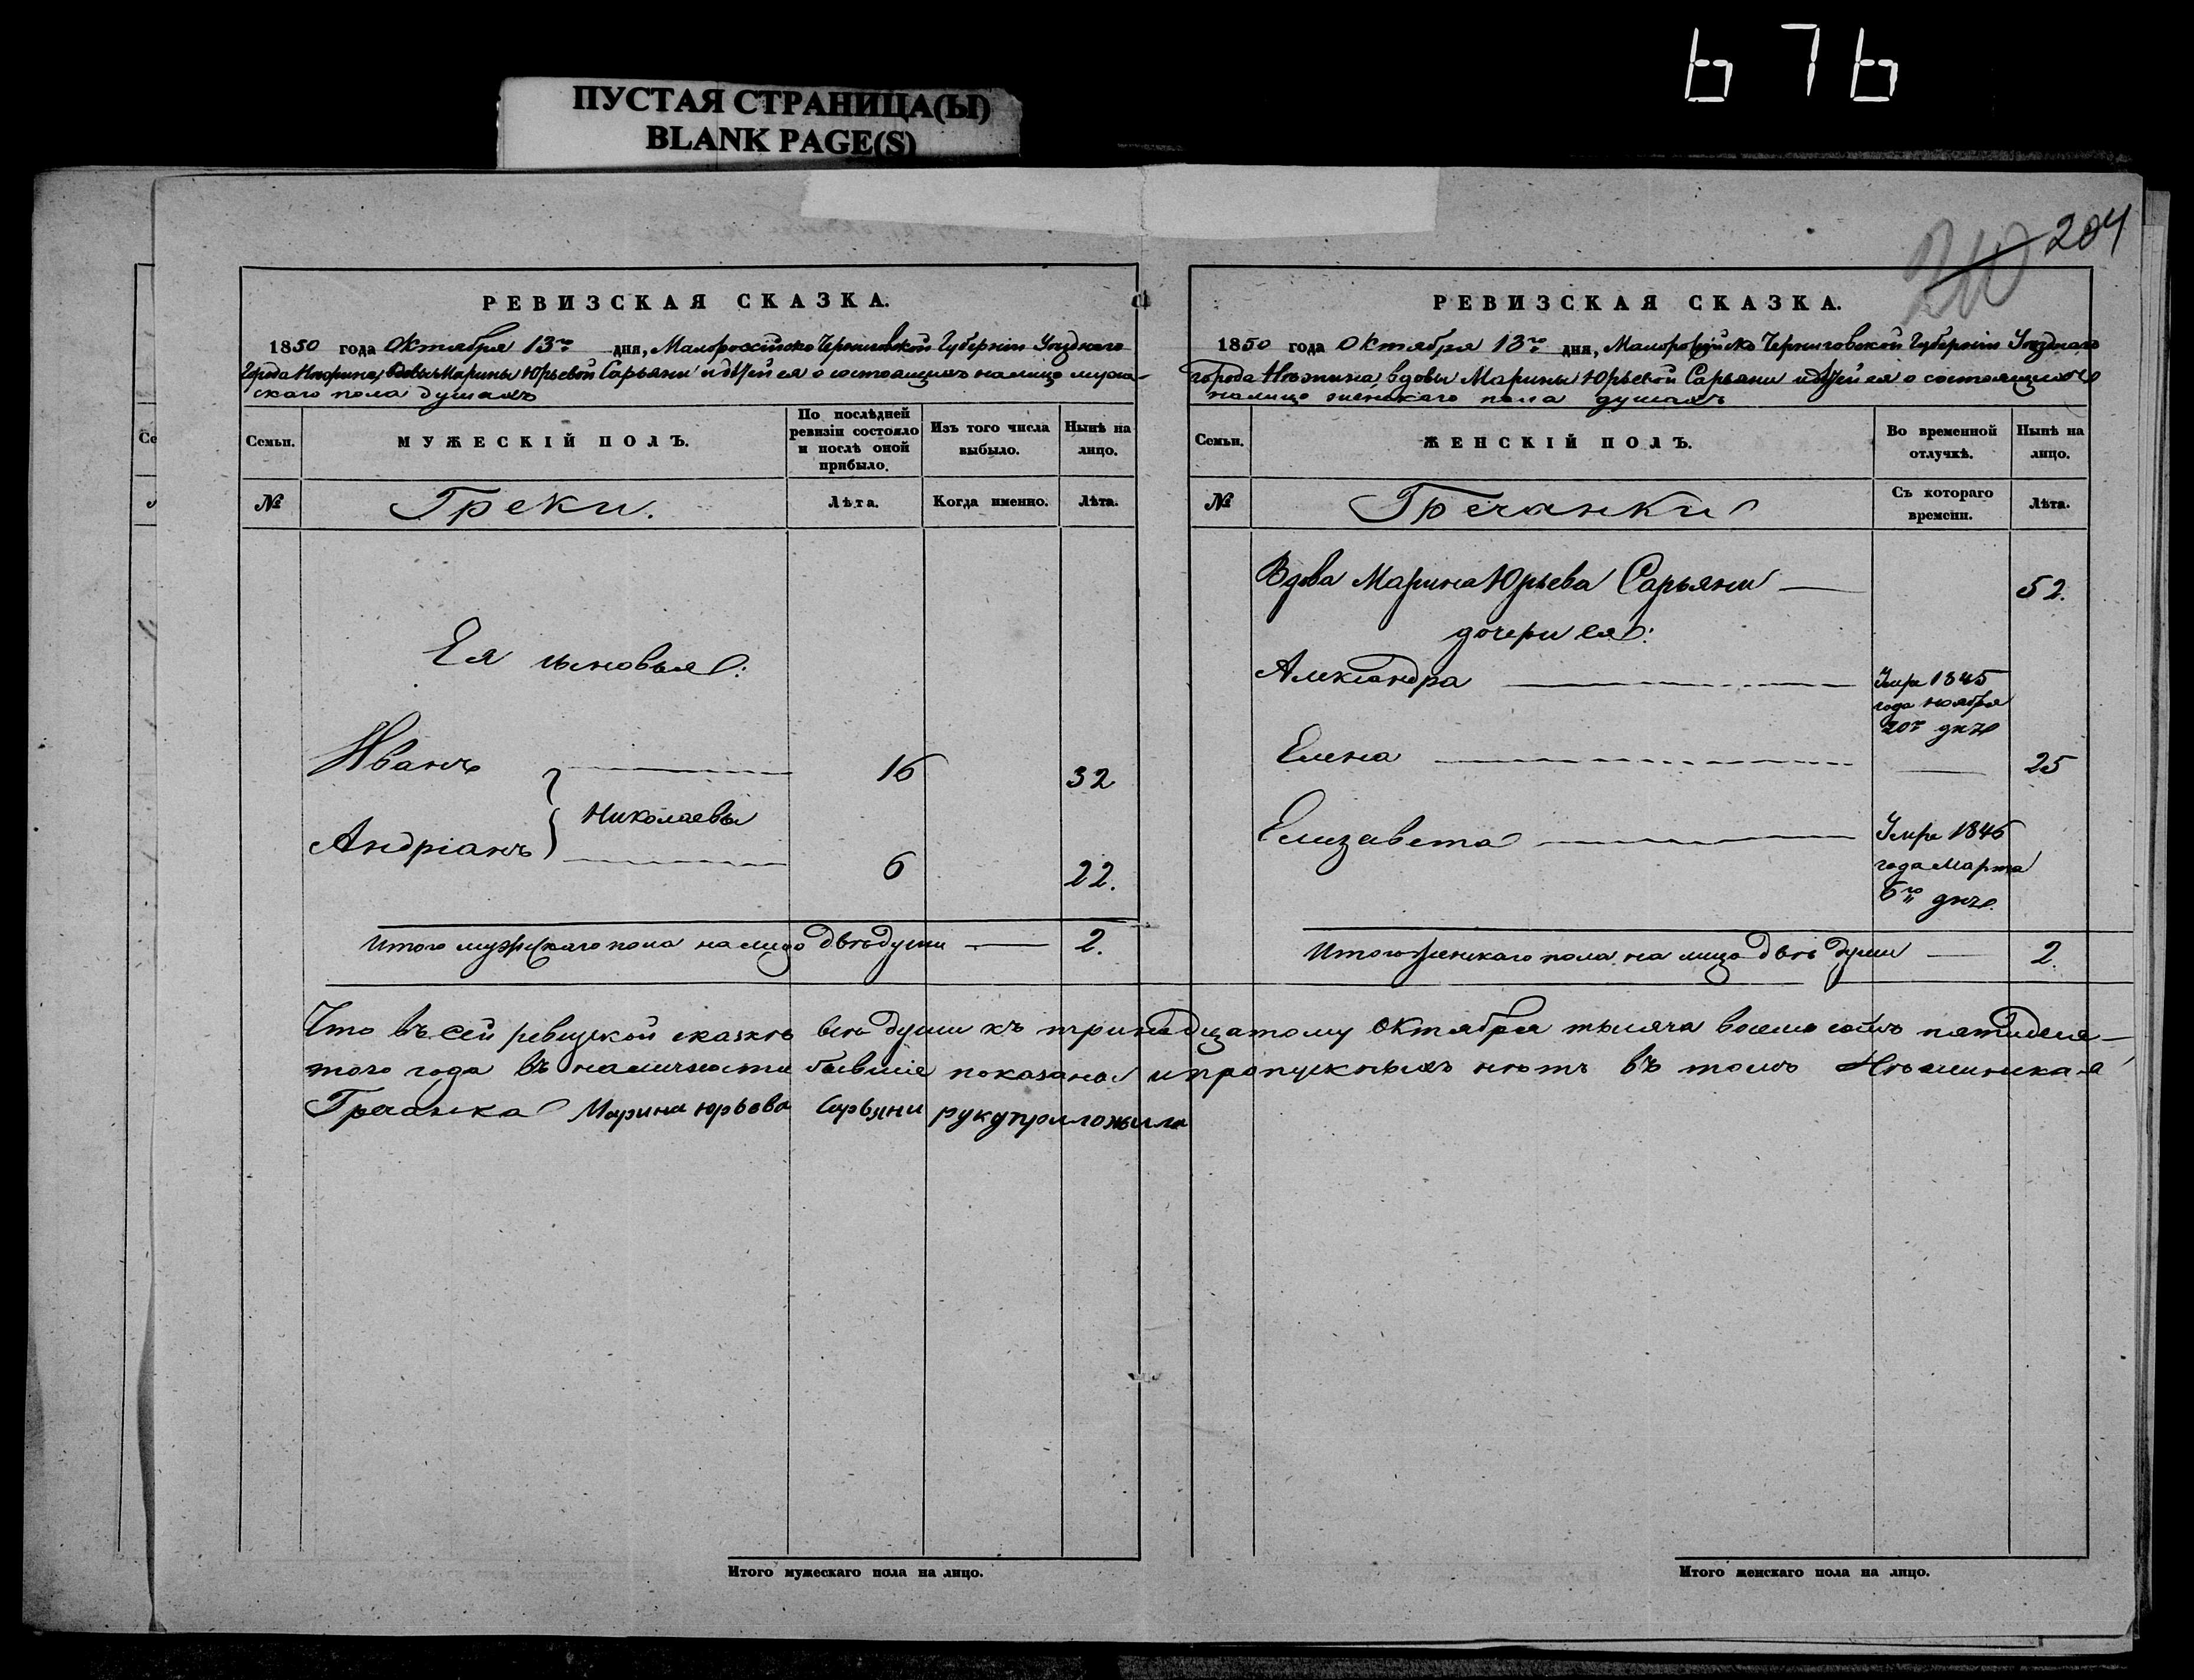 676
ПУСТАЯ СТРАНИЦА(Ы)
BLANK PAGE(S)
204
210
РЕВИЗСКАЯ СКАЗКА.
1850 года Октября 13го дня, Малороссійско Черниговской Губерніи Уѣзднаго
Города Нѣжина, вдовы Марины Юрьевой Сарьяни и дѣтей ея о состоящихъ налицо муже-
скаго пола душахъ
Семьи.
МУЖЕСКІЙ ПОЛЪ.
По послѣдней ревизіи состояло и послѣ оной прибыло.
Изъ того числа выбыло.
Нынѣ на лицо.
№
Греки.
Лѣта.
Когда именно.
Лѣта.
Ея сыновья:
Иванъ 16 32
Николаевы
Андріанъ 6 22.
Итого мужескаго пола на лицо двѣ души 2.
РЕВИЗСКАЯ СКАЗКА.
1850 года Октября 13го дня, Малороссійско Черниговской Губерніи Уѣзднаго
города Нѣжина, вдовы Марины Юрьевой Сарьяни и дѣтей ея о состоящихъ
налицо женскаго пола душахъ
Семьи.
ЖЕНСКІЙ ПОЛЪ.
Во временной отлучкѣ.
Нынѣ на лицо.
№
Гречанки
Съ котораго времени.
Лѣта.
Вдова Марина Юрьева Сарьяни 52.
дочери ея:
Александра Умре 1845
года ноября
20го днѣ
Елена 25
Елизавета Умре 1846
года Марта
6го днѣ.
Итого женскаго пола на лицо двѣ души 2.
Что въ сей ревизской сказкѣ всѣ души къ тринадцатому Октября тысяча восемь сотъ пятидеся-
того года въ наличности бывшіе показаны и пропускныхъ нѣтъ въ томъ Нѣжинская
Гречанка Марина Юрьева Сарьяни руку приложила
Итого мужескаго пола на лицо.
Итого женскаго пола на лицо.